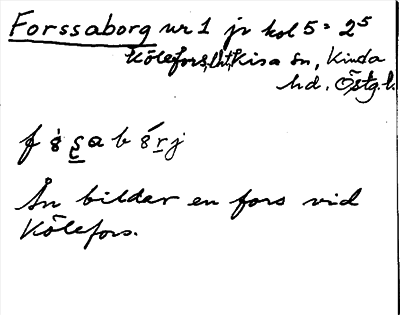 Forssaborg nr 1 jr kol 5 = 2⁵
Kölefors, lht, Kisa sn, Kinda
hd. Östg. l.
Ån bildar en fors vid
Kölefors.